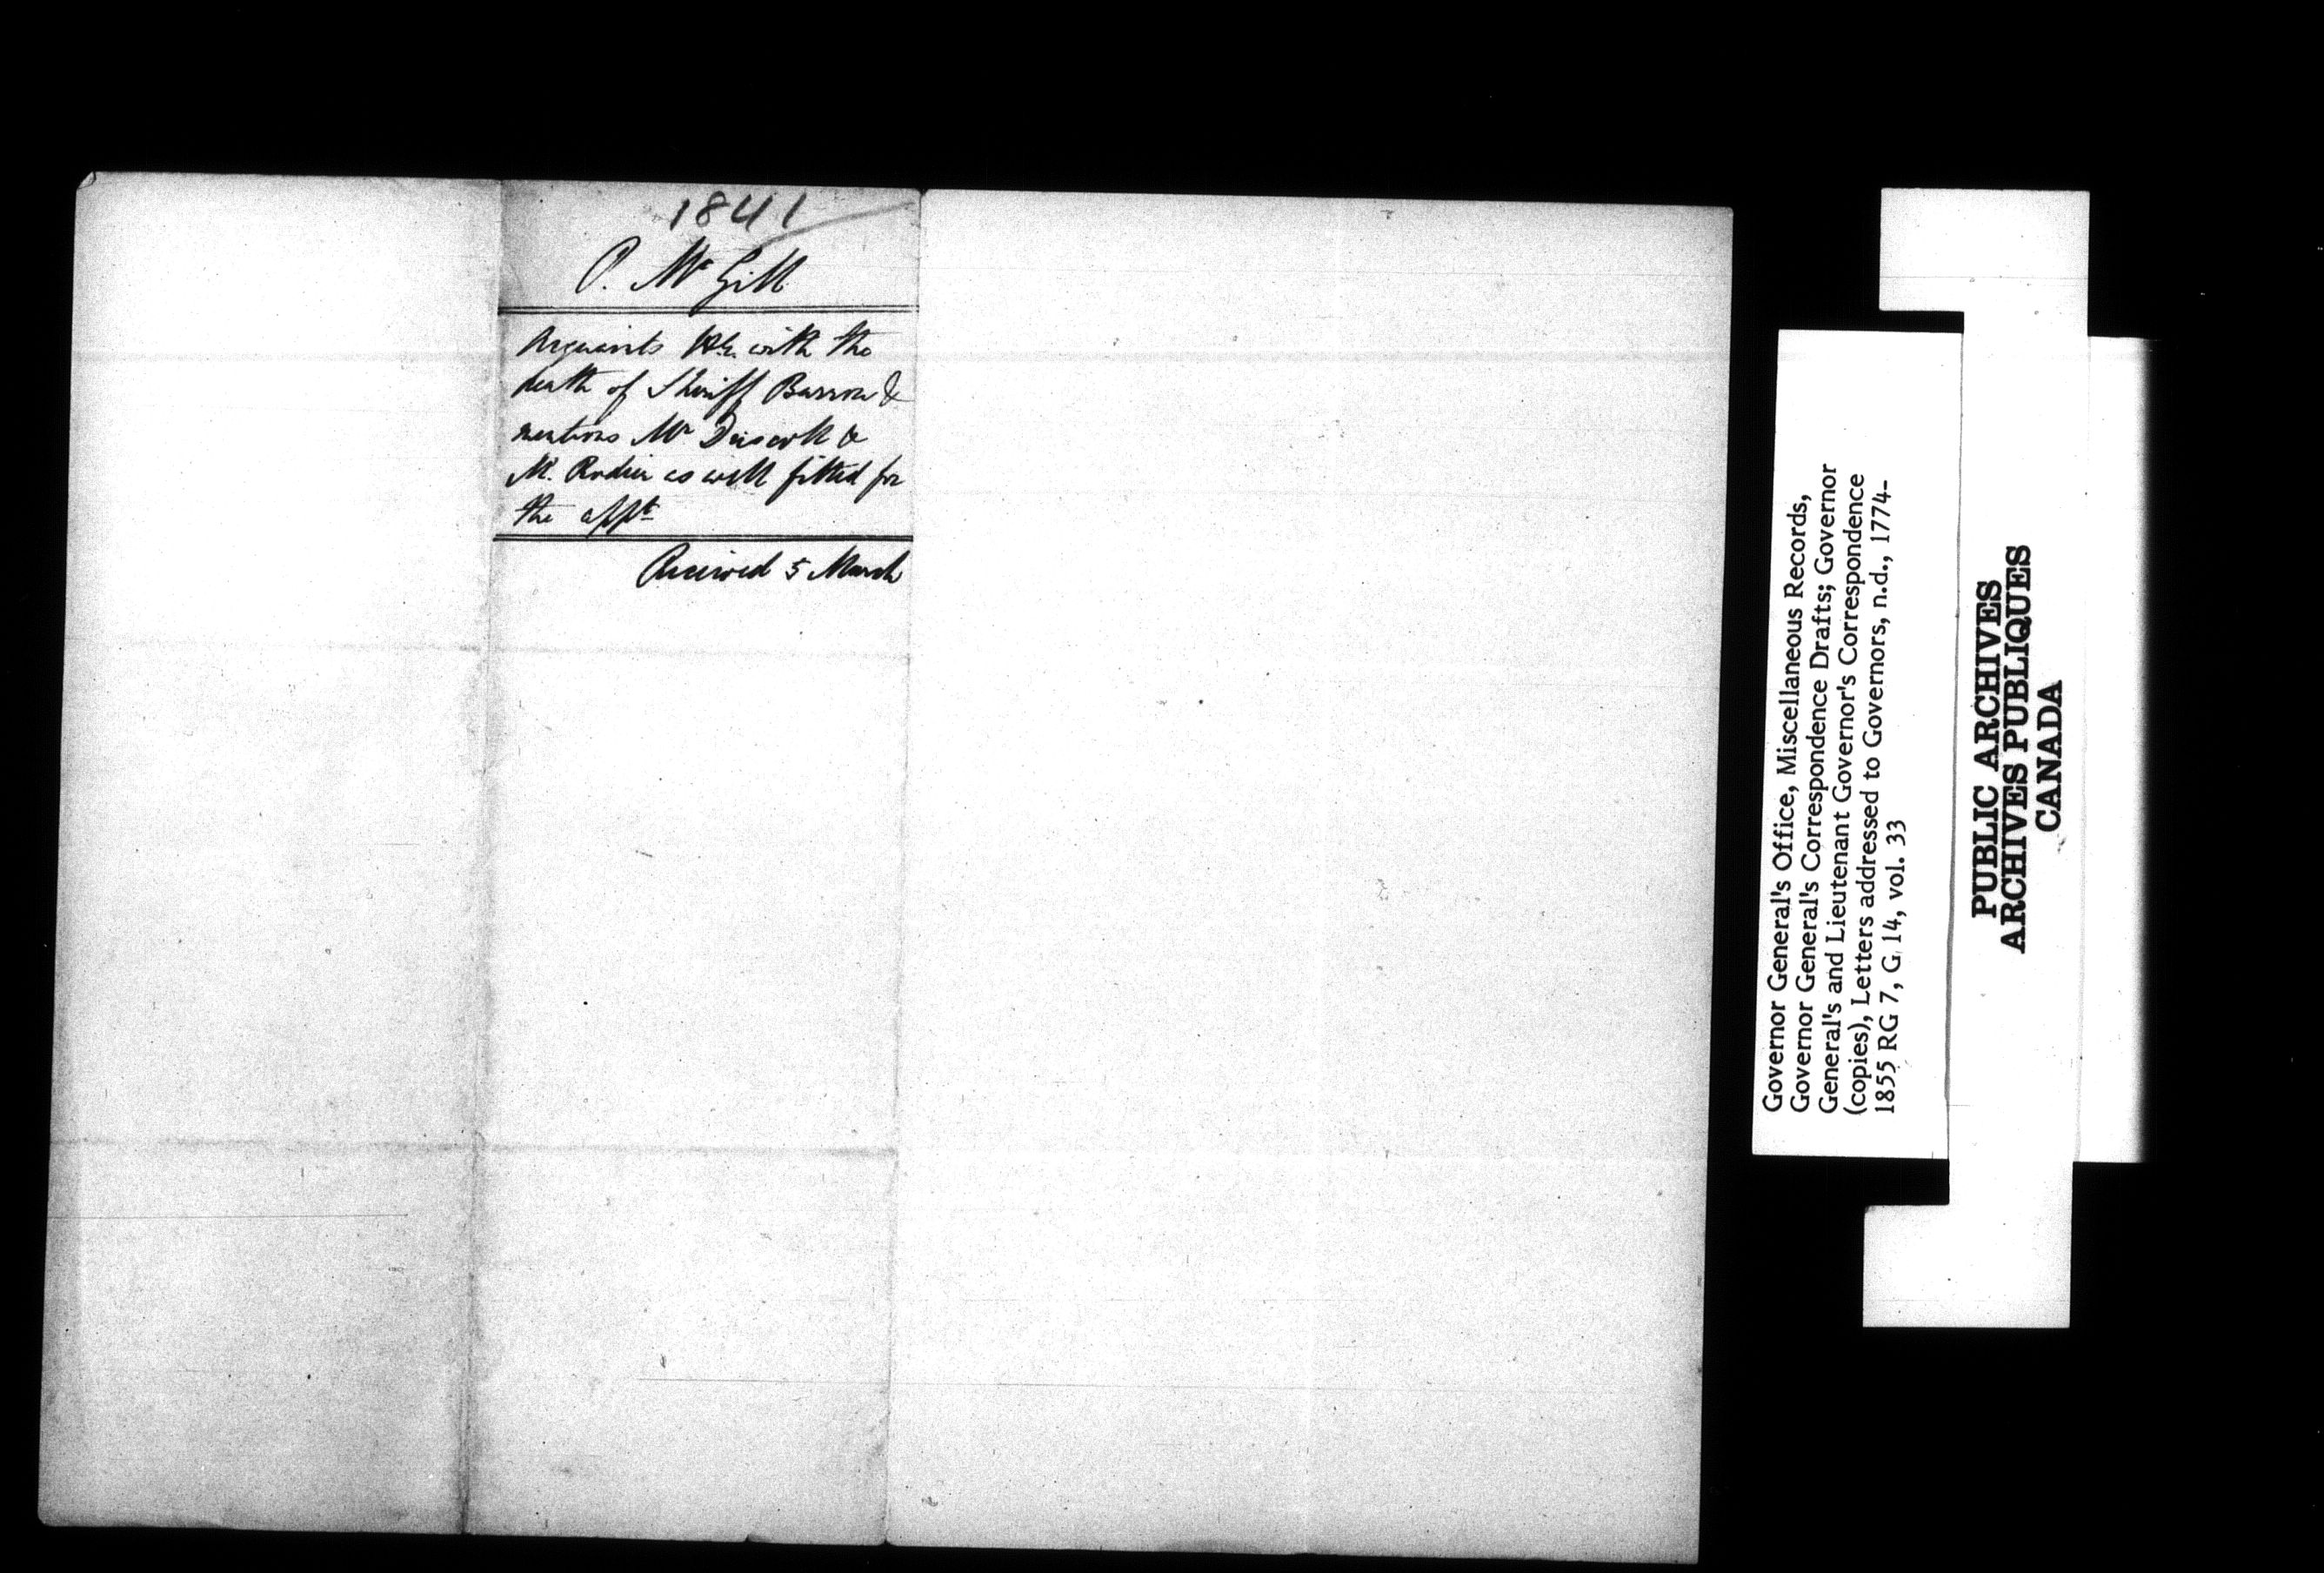 1841
P. McGill
Acquaints H.E. with the
death of Sheriff Barron &
mentions Mr Driscoll &
M. Rodier as well fitted for
the appt
Received 5 March
Governor General's Office, Miscellaneous Records,
Governor General's Correspondence Drafts; Governor
General's and Lieutenant Governor's Correspondence
(copies), Letters addressed to Governors, n.d., 1774-
1855 RG 7, G 14, vol. 33
PUBLIC ARCHIVES
ARCHIVES PUBLIQUES
CANADA